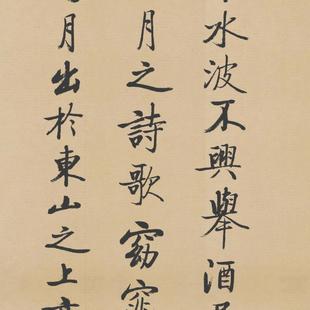 水波不興舉酒
月之詩歌窈窕
月出於東山之上